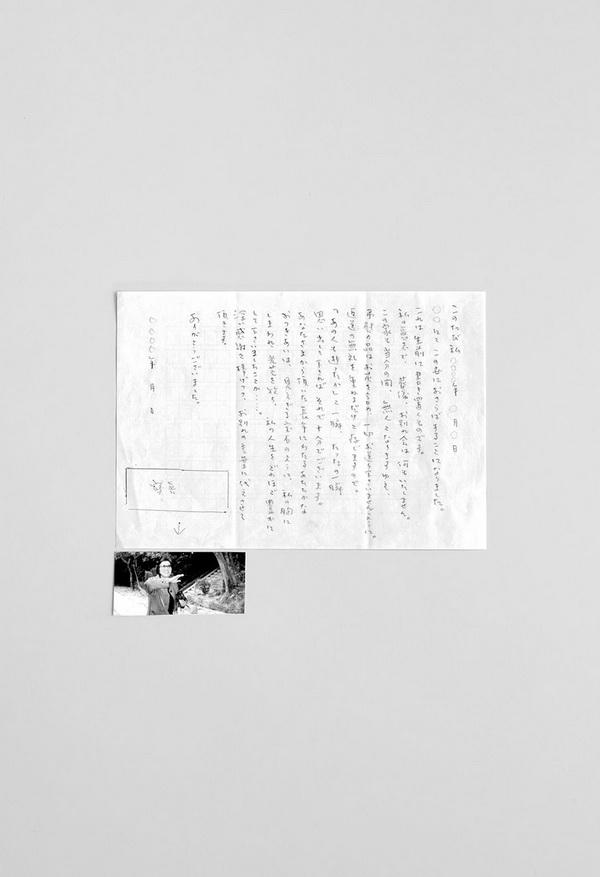 このたび私 〇〇〇〇年 〇月〇日
〇〇にて この世におさらばすることになりました。
これは生前に書き置くものです。
私の意志で、葬儀、お別れ会は 何もいたしません。
この家も当分の間、無人となりますゆえ、
弔慰の品はお花を含め、一切お送り下さいませんように。
返送の無礼を重ねるだけと存じますので。
「あの人も逝ったか」と一瞬、たったの一瞬
思い出して下されば それで十分でございます。
あなたさまから頂いた長年にわたるあたたかな
おつきあいは、見えざる宝石のように、私の胸に
しまわれ、光芒を放ち、私の人生をどれほど豊かに
して下さいましたことか……。
深い感謝を捧げつつ、お別れの言葉に代えさせて
頂きます。
ありがとうございました。
〇〇〇〇年 月 日